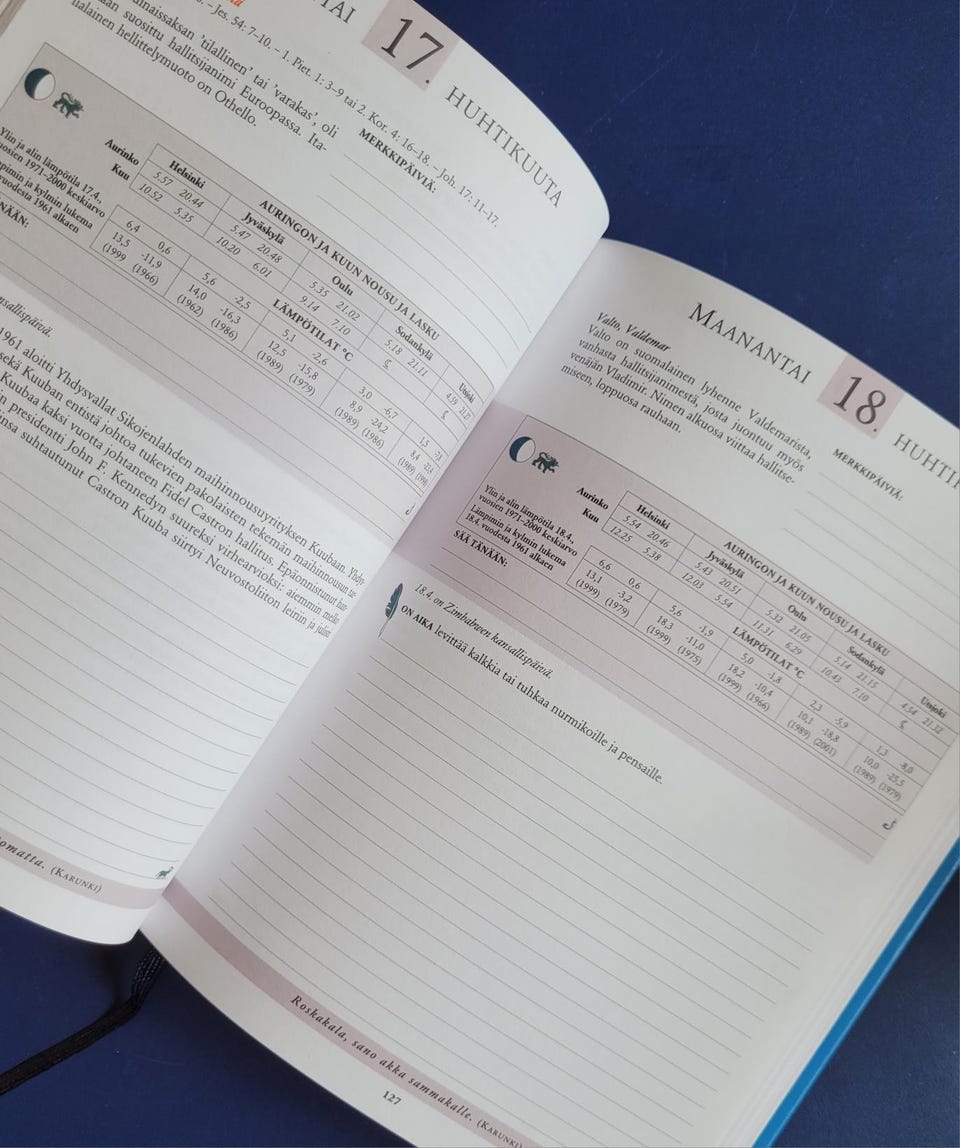 TAI 17. HUHTIKUUTA
– Jes. 54: 7–10. – 1. Piet. 1: 3–9 tai 2. Kor. 4: 16–18. – Joh. 17: 11–17.
'tilallinen' tai 'varakas', oli
suosittu hallitsijanimi Euroopassa. Ita-
lialainen hellittelymuoto on Othello.
MERKKIPÄIVIÄ:
AURINGON JA KUUN NOUSU JA LASKU
Helsinki Jyväskylä Oulu Sodankylä Utsjoki
Aurinko 5.57 20.44 5.47 20.48 5.35 21.02 5.18 21.11 4.59 21.27
Kuu 10.52 5.35 10.20 6.01 9.14 7.10
LÄMPÖTILAT °C
Ylin ja alin lämpötila 17.4.,
vuosien 1971–2000 keskiarvo
6,4 0,6 5,6 -2,5 5,1 -2,6 3,0 -6,7 1,5
lämpimin ja kylmin lukema
vuodesta 1961 alkaen
13,5 -11,9 14,0 -16,3 12,5 -15,8 8,9 -24,2 8,4
(1999 (1966) (1962) (1986) (1989) (1979) (1989) (1986) (1989)
TÄNÄÄN:
kansallispäivä.
1961 aloitti Yhdysvallat Sikojenlahden maihinnousuyrityksen Kuubaan. Yhdy-
sekä Kuuban entistä johtoa tukevien pakolaisten tekemän maihinnousun ta-
Kuubaa kaksi vuotta johtaneen Fidel Castron hallitus. Epäonnistunut han-
presidentti John F. Kennedyn suureksi virhearvioksi: aiemmin melko
suhtautunut Castron Kuuba siirtyi Neuvostoliiton leiriin ja julisti
(KARUNKI)
MAANANTAI 18. HUHTI
Valto, Valdemar
Valto on suomalainen lyhenne Valdemarista,
vanhasta hallitsijanimestä, josta juontuu myös
venäjän Vladimir. Nimen alkuosa viittaa hallitse-
miseen, loppuosa rauhaan.
MERKKIPÄIVIÄ:
AURINGON JA KUUN NOUSU JA LASKU
Helsinki Jyväskylä Oulu Sodankylä Utsjoki
Aurinko 5.54 20.46 5.43 20.51 5.32 21.05 5.14 21.15 4.54 21.32
Kuu 12.25 5.38 12.03 5.54 11.31 6.29 10.43 7.10
LÄMPÖTILAT °C
Ylin ja alin lämpötila 18.4.,
vuosien 1971–2000 keskiarvo
6,6 0,6 5,6 -1,9 5,0 -1,8 2,3 -5,9 1,3 -8,0
Lämpimin ja kylmin lukema
18.4. vuodesta 1961 alkaen
13,1 -3,2 18,3 -11,0 18,2 -10,4 10,1 -18,8 10,0 -25,5
(1999) (1979) (1999) (1975) (1999) (1966) (1989) (2001) (1989) (1979)
SÄÄ TÄNÄÄN:
18.4. on Zimbabween kansallispäivä.
ON AIKA levittää kalkkia tai tuhkaa nurmikoille ja pensaille.
Roskakala, sano akka sammakalle. (KARUNKI)
127